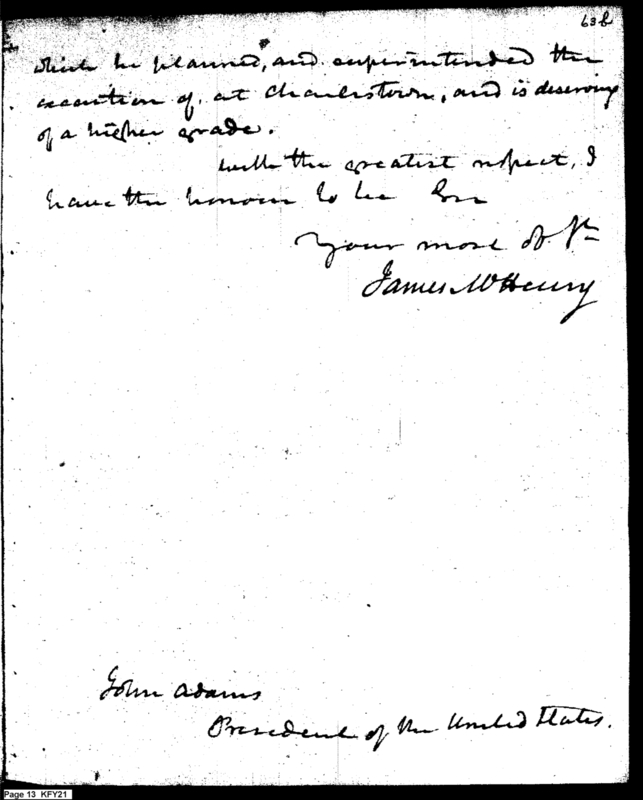 63b
which he planned, and superintended the
execution of, at Charlestown, and is deserving
of a higher grade.
with the greatest respect, I
have the honour to be Sir
Your most Ob. St
James McHenry
John Adams
President of the United States.
Page 13 KFY21